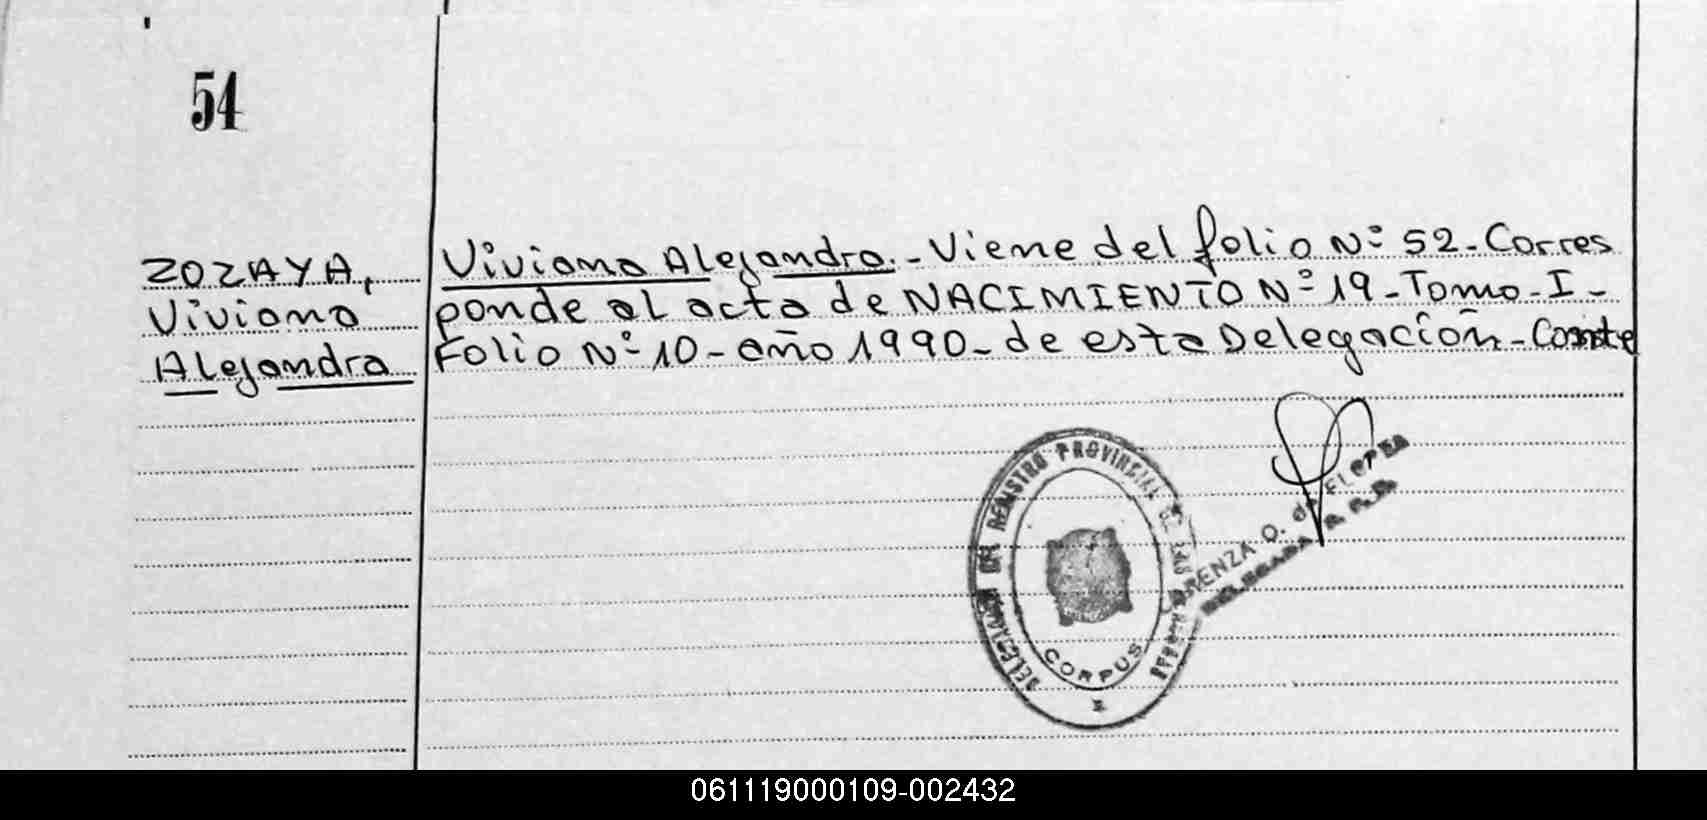 54
ZOZAYA,
Viviana
Alejandra
Viviana Alejandra.- Viene del folio Nº 52.- Corres
ponde al acta de NACIMIENTO Nº 19 - Tomo - I -
Folio Nº 10 - año 1990 - de esta Delegación - Conste
DELEGACION DEL REGISTRO PROVINCIAL DE LAS
CORPUS
LORENZA O. de FLORES
DELEGADA
061119000109-002432